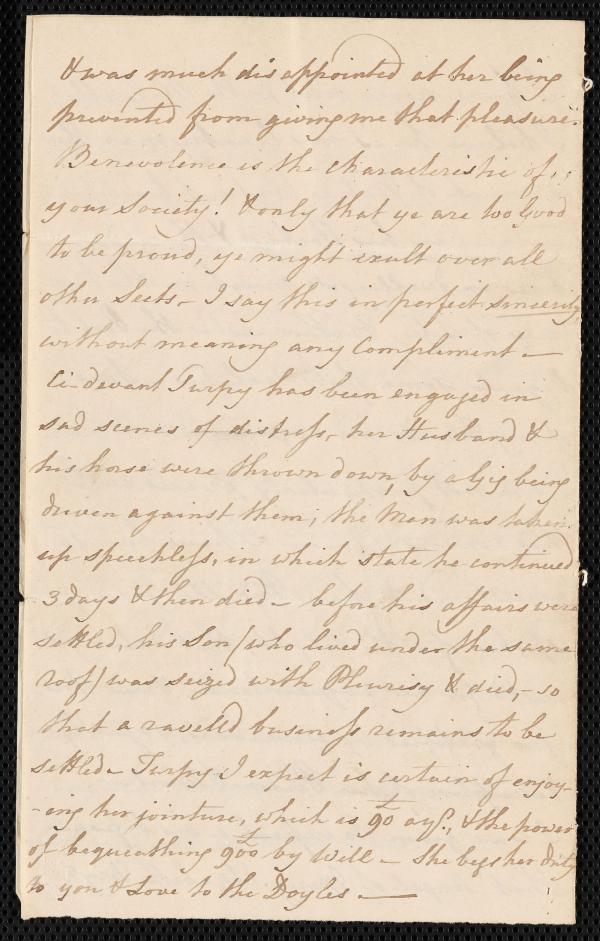 & was much disappointed at her being
prevented from giving me that pleasure.
Benevolence is the characteristic of
your Society! & only that ye are too good
to be proud, ye might exult over all
other Sects – I say this in perfect sincerity
without meaning any Compliment —
Ci-devant Turpy has been engaged in
sad scenes of distress, her Husband &
his horse were thrown down, by a Gig being
driven against them; the Man was taken
up speechless, in which state he continued
3 days & then died – before his affairs were
settled, his Son (who lived under the same
roof) was seized with Pleurisy & died, – so
that a ravelled business remains to be
settled – Turpy I expect is certain of enjoy-
-ing her jointure, which is £90 a yr., & the power
of bequeathing £900 by Will – She begs her duty
to you & Love to the Doyles —